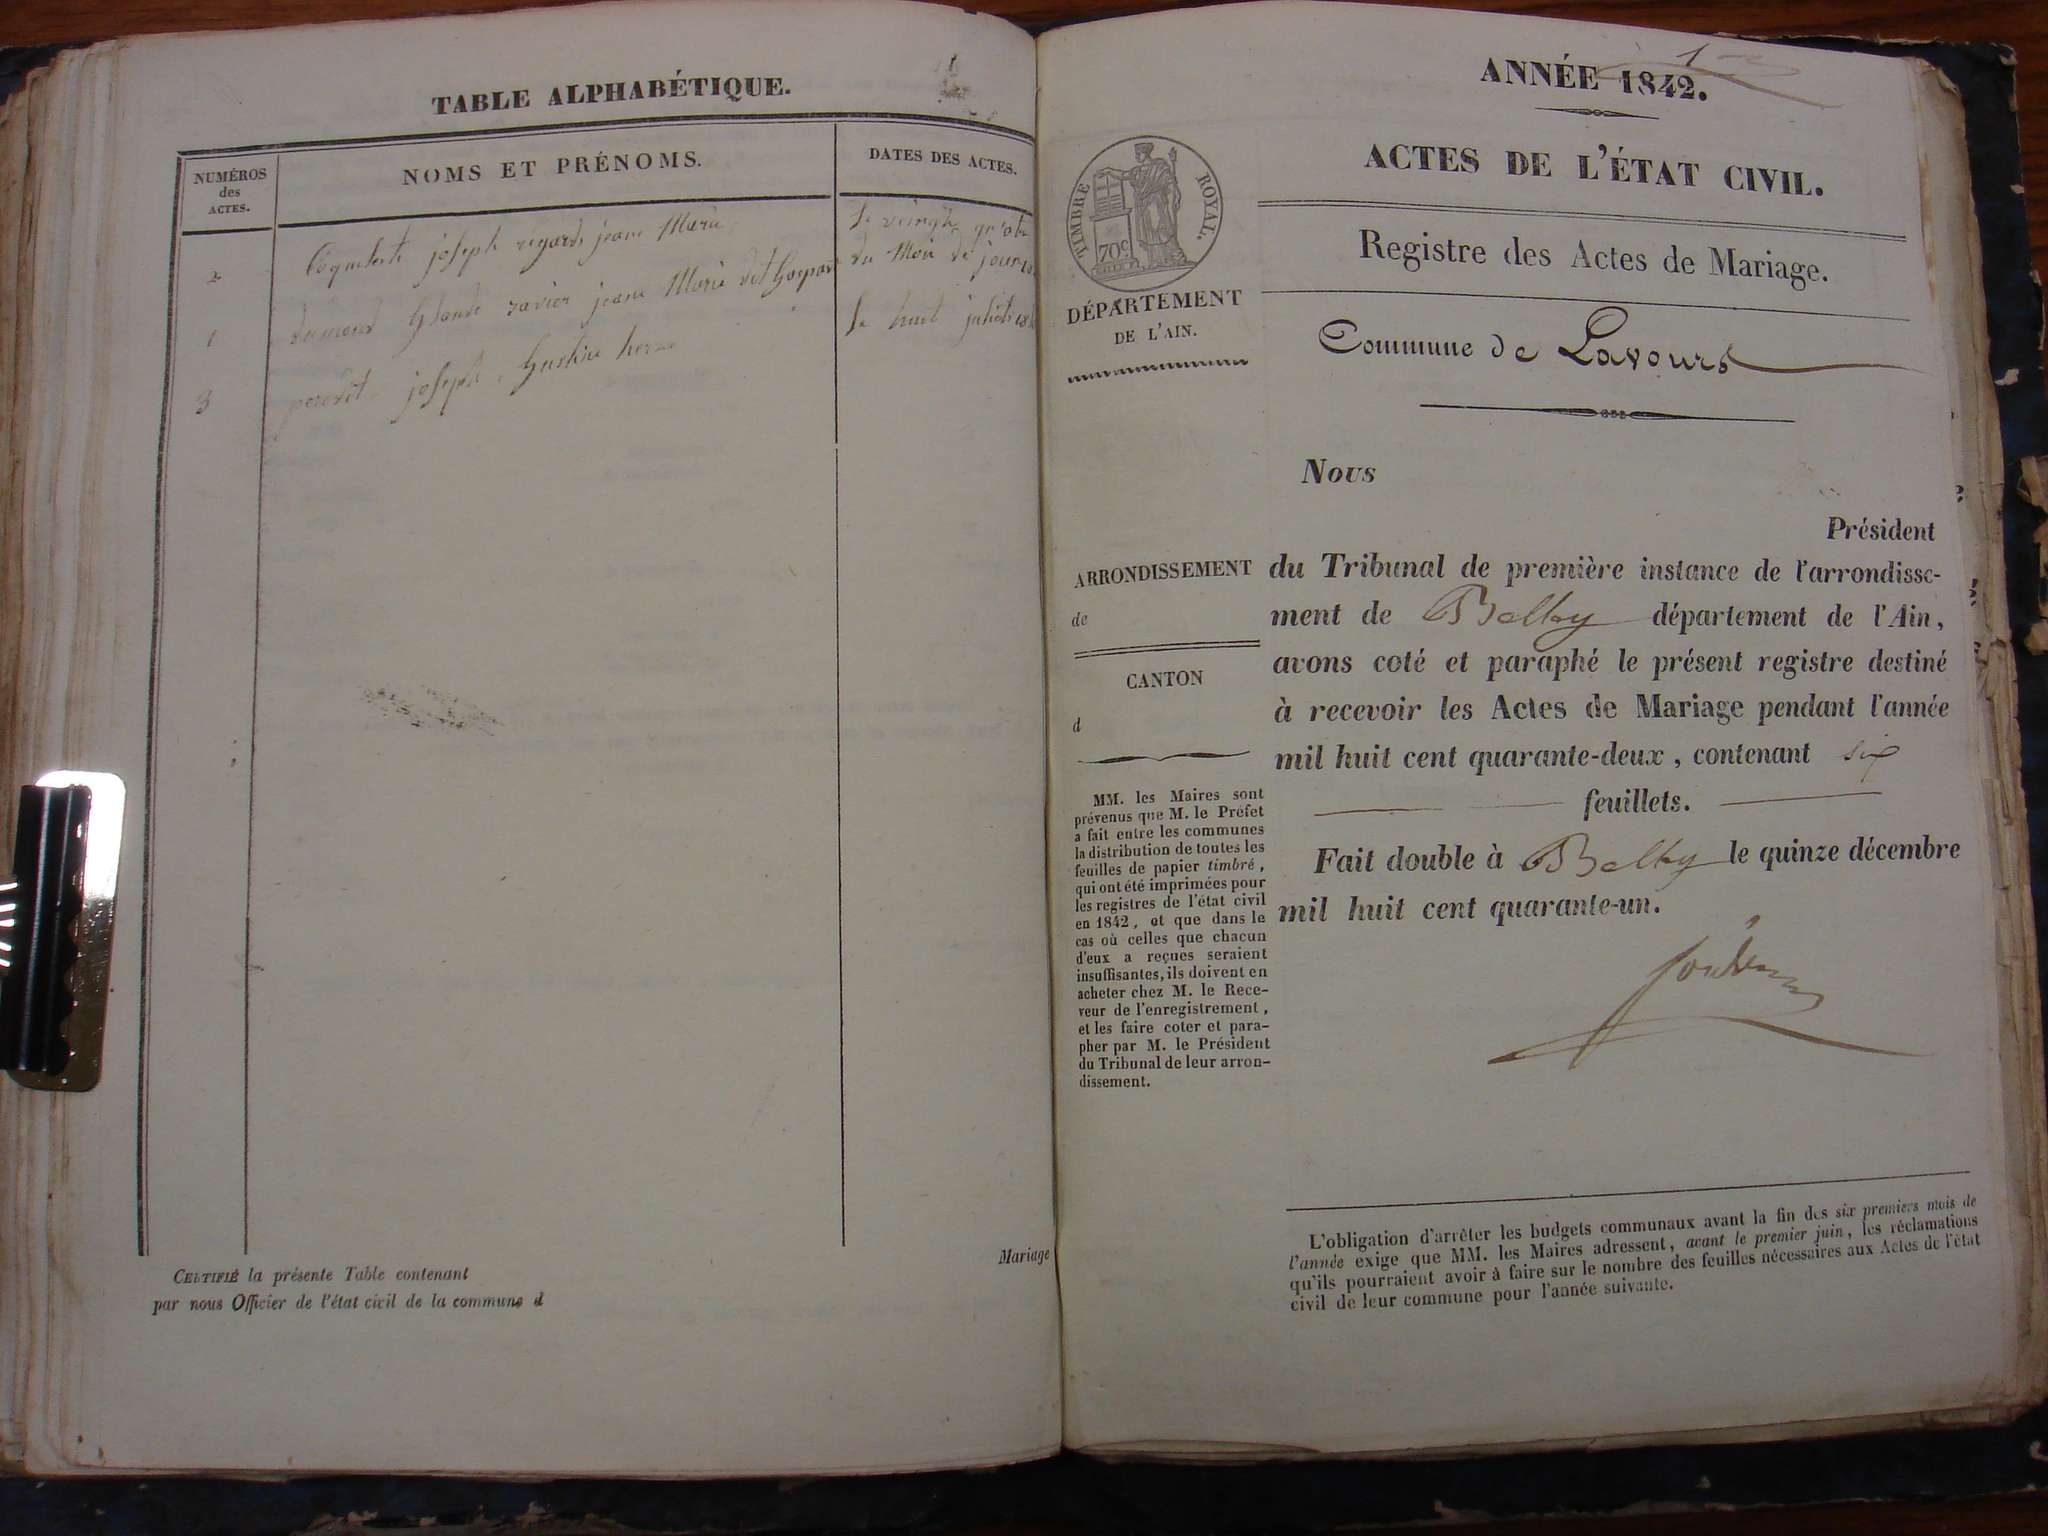 TABLE ALPHABÉTIQUE.
NUMÉROS
des
ACTES.
NOMS ET PRÉNOMS.
DATES DES ACTES.
2
joseph jeane Marie
Le
du Mois de
1
jeane Marie
Le huit
3
joseph
Mariage
CERTIFIÉ la présente Table contenant
par nous Officier de l'état civil de la commune d
1
ANNÉE 1842.
ACTES DE L'ÉTAT CIVIL.
Registre des Actes de Mariage.
Commune de Lavours
TIMBRE ROYAL.
70c
DÉPARTEMENT
DE L'AIN.
ARRONDISSEMENT
de
CANTON
d
MM. les Maires sont
prévenus que M. le Préfet
a fait entre les communes
la distribution de toutes les
feuilles de papier timbré,
qui ont été imprimées pour
les registres de l'état civil
en 1842, et que dans le
cas où celles que chacun
d'eux a reçues seraient
insuffisantes, ils doivent en
acheter chez M. le Rece-
veur de l'enregistrement,
et les faire coter et para-
pher par M. le Président
du Tribunal de leur arron-
dissement.
Nous
Président
du Tribunal de première instance de l'arrondisse-
ment de Belley département de l'Ain,
avons coté et paraphé le présent registre destiné
à recevoir les Actes de Mariage pendant l'année
mil huit cent quarante-deux, contenant six
feuillets.
Fait double à Belley le quinze décembre
mil huit cent quarante-un.
L'obligation d'arrêter les budgets communaux avant la fin des six premiers mois de
l'année exige que MM. les Maires adressent, avant le premier juin, les réclamations
qu'ils pourraient avoir à faire sur le nombre des feuilles nécessaires aux Actes de l'état
civil de leur commune pour l'année suivante.